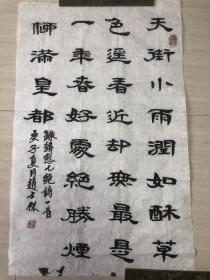 天街小雨潤如酥草
色遥看近却無最是
一年春好處絶勝煙
柳滿皇都
錄韓愈七絶詩一首
庚子夏月趙士傑